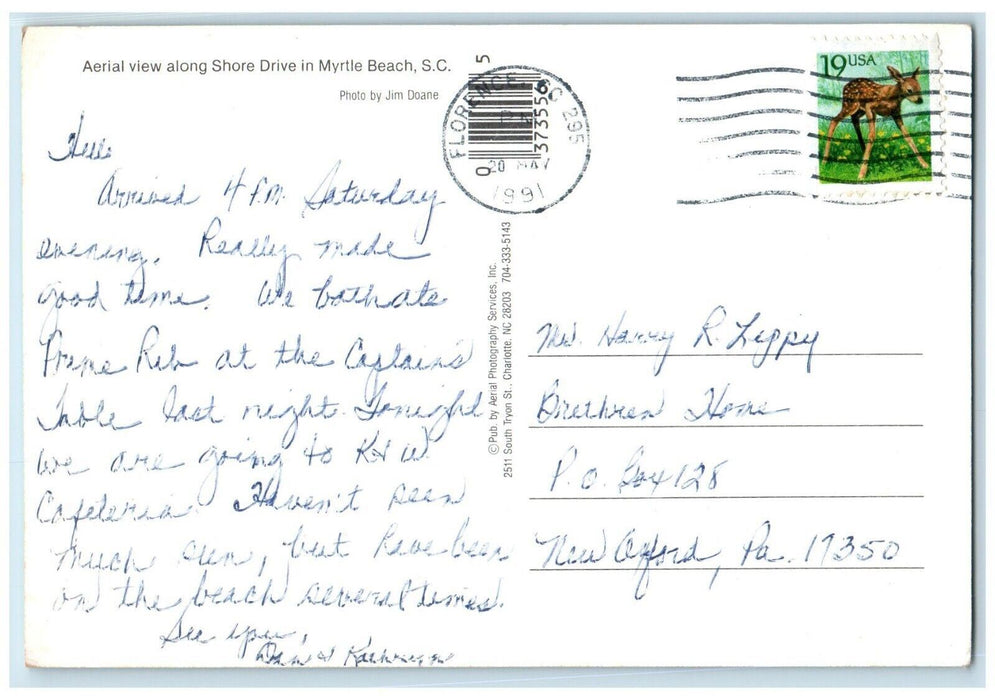 Aerial view along Shore Drive in Myrtle Beach, S.C.
Photo by Jim Doane
Hello
Arrived 4 P.M. Saturday
evening. Really made
good time. We both ate
Prime Rib at the Captain's
Table last night. Tonight
we are going to K & W
Cafeteria. Haven't seen
much sun, but have been
on the beach several times.
See you,
Dan & Kathryn
©Pub. by Aerial Photography Services, Inc.
2511 South Tryon St., Charlotte, NC 28203 704-333-5143
FLORENCE, SC 295
20 MAY
1991
0 373556 5
19USA
Mrs. Harry R. Lippy
Brethren Home
P.O. Box 128
New Oxford, Pa. 17350